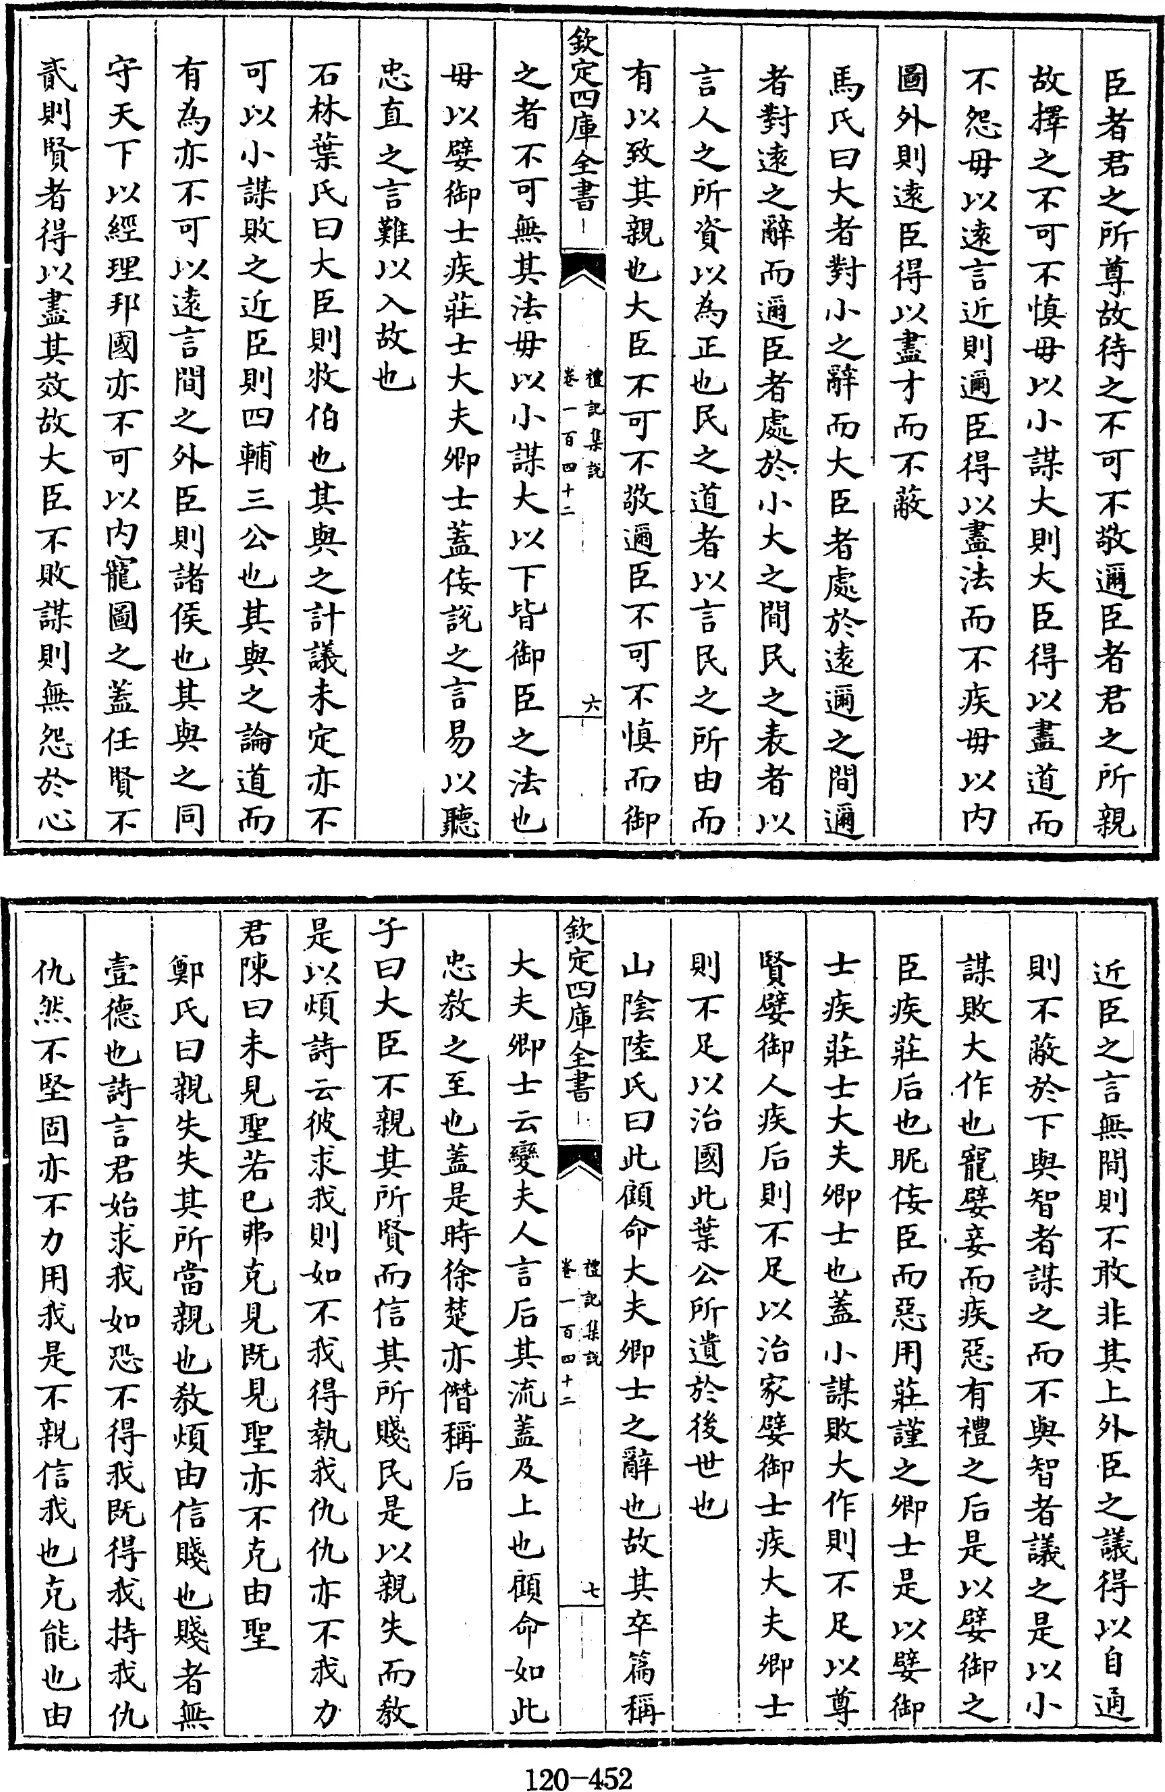 臣者君之所尊故待之不可不敬邇臣者君之所親
故擇之不可不慎毋以小謀大則大臣得以盡道而
不怨毋以逺言近則邇臣得以盡法而不疾毋以内
圖外則逺臣得以盡才而不蔽
馬氏曰大者對小之辭而大臣者處於逺邇之間邇
者對逺之辭而邇臣者處於小大之間民之表者以
言人之所資以為正也民之道者以言民之所由而
有以致其親也大臣不可不敬邇臣不可不慎而御
欽定四庫全書
禮記集說
卷一百四十二
六
之者不可無其法毋以小謀大以下皆御臣之法也
毋以嬖御士疾莊士大夫卿士蓋佞說之言易以聽
忠直之言難以入故也
石林葉氏曰大臣則牧伯也其與之計議未定亦不
可以小謀敗之近臣則四輔三公也其與之論道而
有為亦不可以逺言間之外臣則諸侯也其與之同
守天下以經理邦國亦不可以内寵圖之蓋任賢不
貳則賢者得以盡其效故大臣不敗謀則無怨於心
近臣之言無間則不敢非其上外臣之議得以自通
則不蔽於下與智者謀之而不與智者議之是以小
謀敗大作也寵嬖妾而疾惡有禮之后是以嬖御之
臣疾莊后也昵佞臣而惡用莊謹之卿士是以嬖御
士疾莊士大夫卿士也蓋小謀敗大作則不足以尊
賢嬖御人疾后則不足以治家嬖御士疾大夫卿士
則不足以治國此葉公所遺於後世也
山陰陸氏曰此顧命大夫卿士之辭也故其卒篇稱
欽定四庫全書
禮記集說
卷一百四十二
七
大夫卿士云變夫人言后其流蓋及上也顧命如此
忠敎之至也蓋是時徐楚亦僭稱后
子曰大臣不親其所賢而信其所賤民是以親失而敎
是以煩詩云彼求我則如不我得執我仇仇亦不我力
君陳曰未見聖若已弗克見既見聖亦不克由聖
鄭氏曰親失失其所當親也敎煩由信賤也賤者無
壹德也詩言君始求我如恐不得我既得我持我仇
仇然不堅固亦不力用我是不親信我也克能也由
120-452